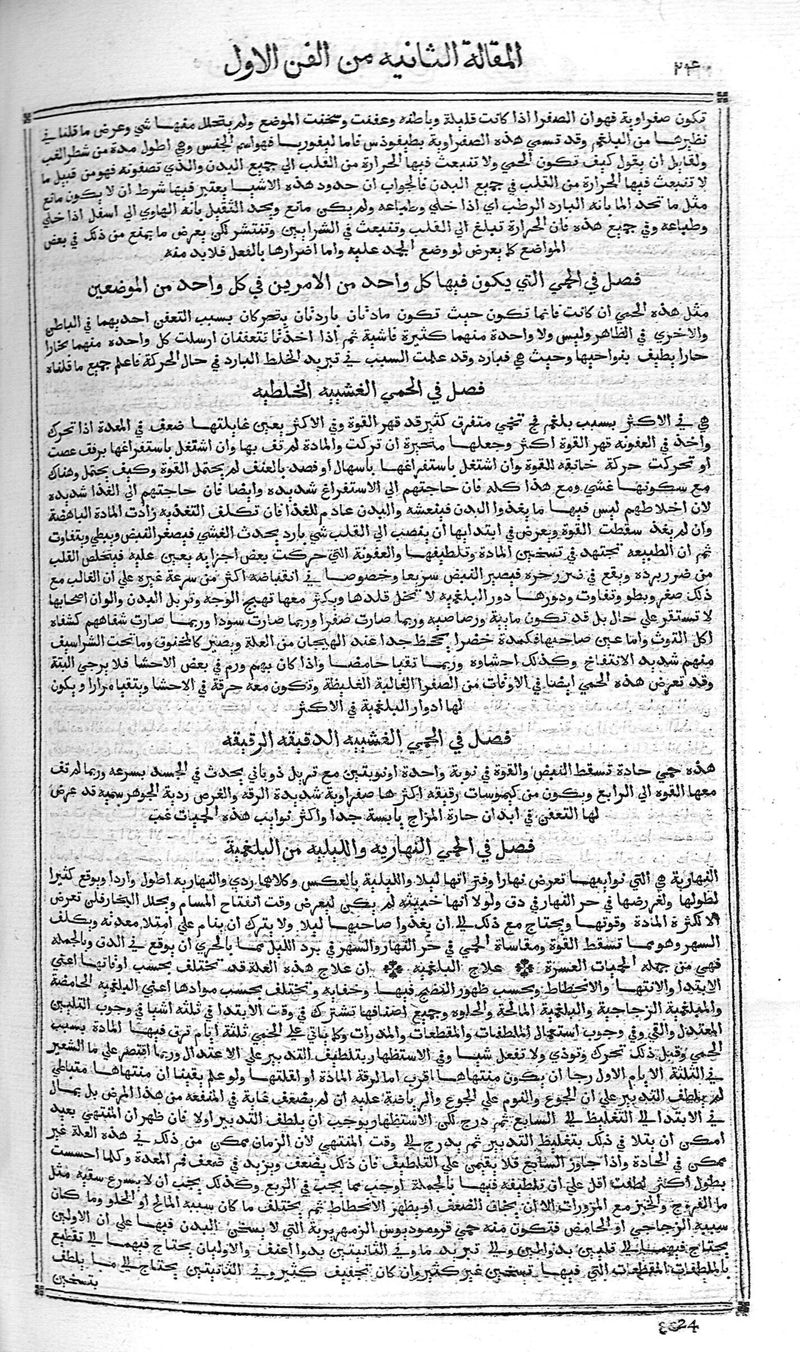 المقالة الثانيه من الفن الاول
تكون صفراوية فهو ان الصفرا اذا كانت قليلة وباطنه وعفنت وسخفت الموضع ولم يتحلل منها شي وعرض ما قلنا في
نظيرها من البلغم وقد تسمي هذه الصفراوية بطيفودس فاما ليفوريا فهو اسم الجنس وهي اطول مدة من شطر الغب
ولقايل ان يقول كيف تكون الحمي ولا تنبعث فيها الحرارة من القلب الي جميع البدن والذي تصفونه فهو من قبيل ما
لا تنبعث فيها الحرارة من القلب في جميع البدن فالجواب ان حدود هذه الاشيا يعتبر فيها شرط ان لا يكون مانع
مثل ما تحد الما بانه البارد الرطب اي اذا خلي وطباعه ولم يكن مانع ويحد الثقيل بانه الهاوي الي اسفل اذا خلي
وطباعه وفي جميع هذه فان الحرارة تبلغ الي القلب وتنبعث في الشرايين وتنتشر لكن يعرض ما يمنع من ذلك في بعض
المواضع كما يعرض لو وضع الجمد عليه واما اضرارها بالفعل فلا بد منه
فصل في الحمي التي يكون فيها كل واحد من الامرين في كل واحد من الموضعين
مثل هذه الحمي ان كانت فانما تكون حيث تكون مادتان باردتان يتحركان بسبب التعفن احديهما في الباطن
والاخري في الظاهر وليس ولا واحدة منهما كثيرة فاشية ثم اذا اخذتا تتعفنان ارسلت كل واحدة منهما بخارا
حارا يطيف بنواحيها وحيث هي فبارد وقد علمت السبب في تبريد الخلط البارد في حال الحركة فاعلم جميع ما قلناه
فصل في الحمي الغشييه الخلطيه
هي في الاكثر بسبب بلغم فج تخمي متفرق كثير قد قهر القوة وفي الاكثر يعين غايلتها ضعف في المعدة اذا تحرك
واخذ في العفونه قهر القوة اكثر وجعلها متحيرة ان تركت والمادة لم تف بها وان اشتغل باستفراغها برفق عصت
او تحركت حركة خانقه للقوة وان اشتغل باستفراغها باسهال او فصد بالعنف لم يحتمل القوة وكيف يحتمل وهناك
مع سكونها غشي ومع هذا كله فان حاجتهم الي الاستفراغ شديده وايضا فان حاجتهم الي الغذا شديده
لان اخلاطهم ليس فيها ما يغذوا البدن فينعشه والبدن عادم للغذا فان تكلف التغذيه زادت المادة الباهضة
وان لم يغذ سقطت القوة ويعرض في ابتدايها ان ينصب الي القلب شي بارد يحدث الغشي فيصغر النبض ويبطي ويتفاوت
ثم ان الطبيعه تجتهد في تسخين المادة وتلطيفها والعفونة التي حركت بعض اجزايه يعين عليه فيتخلص القلب
من ضرر برده ويقع في ضرر حره فيصير النبض سريعا وخصوصا في انقباضه اكثر من سرعة غيره علي ان الغالب مع
ذلك صغر وبطو وتفاوت ودورها دور البلغميه لا تخل قلدها ويكثر معها تهيج الوجه وتربل البدن والوان اصحابها
لا تستقر علي حال بل قد تكون مايية ورصاصيه وربما صارت صفرا وربما صارت سودا وربما صارت شفاههم كشفاه
اكل التوث واما عين صاحبها فكمدة خضرا تجحظ جدا عند الهيجان من العلة ويصير كالمخنوق وما تحت الشراسيف
منهم شديد الانتفاخ وكذلك احشاوه وربما تقيا حامضا واذا كان بهم ورم في بعض الاحشا فلا يرجي البتة
وقد تعرض هذه الحمي ايضا في الاوقات من الصفرا الغالبة الغليظة وتكون معه حرقة في الاحشا ويتقيا مرارا ويكون
لها ادوار البلغمية في الاكثر
فصل في الحمي الغشييه الدقيقه الرقيقه
هذه حمي حادة تسقط النبض والقوة في نوبة واحدة او نوبتين مع تربل ذوباني يحدث في الجسد بسرعه وربما لم تف
معها القوة الي الرابع ويكون من كيموسات رقيقه اكثرها صفراوية شديدة الرقه والغوص ردية الجوهر سميه قد عرض
لها التعفن في ابدان حارة المزاج يابسة جدا واكثر نوايب هذه الحميات غب
فصل في الحمي النهاريه والليليه من البلغمية
النهارية هي التي نوايبها تعرض نهارا وفتراتها ليلا والليلية بالعكس وكلاهما ردي والنهاريه اطول واردا ويوقع كثيرا
لطولها ولعروضها في حر النهار في دق ولولا انها خبيثه لم يكن ليعرض وقت انفتاح المسام ويحلل البخار فلن تعرض
الا لكثرة المادة وقوتها ويحتاج مع ذلك الي ان يغذوا صاحبها ليلا ولا يترك ان ينام علي امتلا معدته ويكلف
السهر وهو مما تسقط القوة ومقاساة الحمي في حر النهار والسهر في برد الليل مما بالحري ان يوقع في الدق وبالجمله
فهي من جمله الحميات العسرة ❋ علاج البلغميه ❋ ان علاج هذه العلة قد يختلف بحسب اوقاتها اعني
الابتدا والانتها والانحطاط وبحسب ظهور النضج فيها وخفايه ويختلف بحسب موادها اعني البلغميه الحامضة
والبلغمية الزجاجية والبلغمية المالحة والحلوه وجميع اصنافها تشترك في وقت الابتدا في ثلثة اشيا في وجوب التليين
المعتدل والقي وفي وجوب استعمال الملطفات والمقطعات والمدرات وكلما ياتي علي الحمي ثلثة ايام ترق فيها المادة بسبب
الحمي وقبل ذلك تحرك وتوذي ولا تفعل شيا وفي الاستظهار بتلطيف التدبير علي الاعتدال وربما اقتصر علي ما الشعير
في الثلثة الايام الاول رجا ان يكون منتهاها اقرب اما لرقة المادة او لقلتها ولو علم يقينا ان منتهاها متباطي
لم يلطف التدبير علي ان الجوع والنوم علي الجوع والرياضة عليه ان لم يضعف غاية في المنفعه من هذا المرض بل يمال
في الابتدا الي التغليظ الي السابع ثم درج لكن الاستظهار يوجب ان يلطف التدبير اولا فان ظهر ان المنتهي بعيد
امكن ان يتلا في ذلك بتغليظ التدبير ثم يدرج الي وقت المنتهي لان الزمان ممكن من ذلك في هذه العلة غير
ممكن في الحادة واذا جاوز السابع فلا يقيمن علي التلطيف فان ذلك يضعف ويزيد في ضعف فم المعدة وكلما احسست
بطول اكثر لطفت اقل علي ان تلطيفه فيها بالجملة اوجب مما يجب في الربع وكذلك يجب ان لا يسرع سقيه مثل
ما الفروج والخبز مع المزورات الا ان يخاف الضعف او يظهر الانحطاط ثم يختلف ما كان سببه المالح او الحلو وما كان
سببه الزجاجي او الحامض فتكون منه حمي قروموديوس الزمهريرية التي لا يسخن البدن فيها علي ان الاولين
يحتاج فيهما الي تليين بدواين والي تبريد ما وفي الثانيتين بدوا اعنف والاوليان يحتاج فيهما الي تقطيع
بالملطفات المقطعات التي فيها تسخين غير كثير وان كان تجفيف كثير وفي الثانيتين يحتاج الي ما يلطف
بتسخين
24